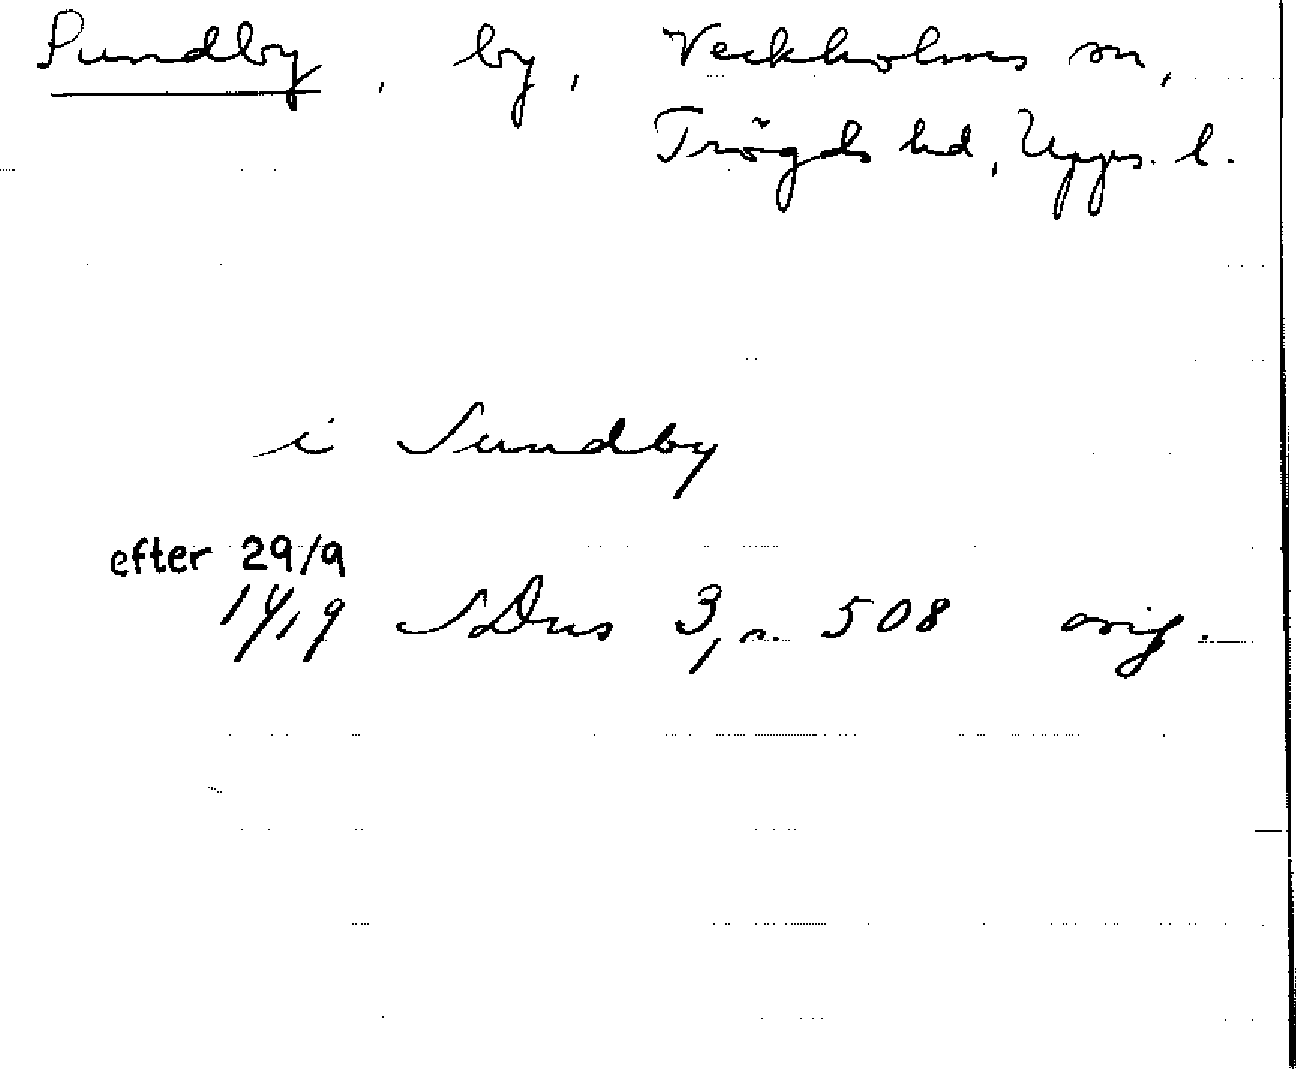 Sundby, by, Veckholms sn,
Trögds hd, Upps. l.
i Sundby
efter 29/9
1419 SDns 3, s. 508 orig.